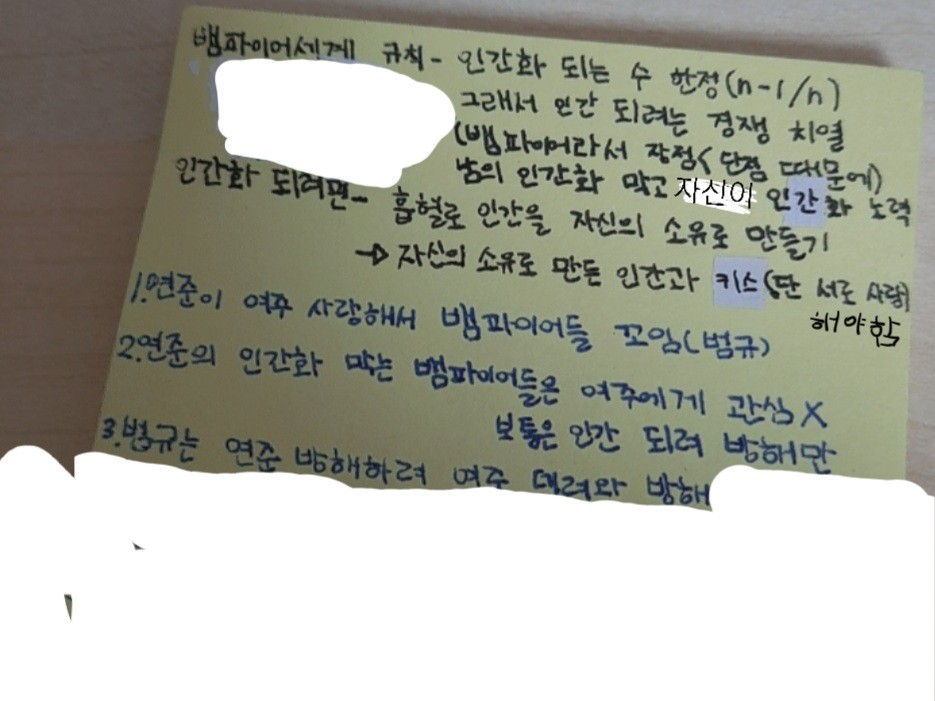 뱀파이어세계 규칙- 인간화 되는 수 한정(n-1/n)
그래서 인간 되려는 경쟁 치열
(뱀파이어라서 장점<단점 때문에)
남의 인간화 막고 자신이 인간화 노력
인간화 되려면- 흡혈로 인간을 자신의 소유로 만들기
→ 자신의 소유로 만든 인간과 키스(단 서로 사랑
해야함
1.연준이 여주 사랑해서 뱀파이어들 꼬임(범규)
2.연준의 인간화 막는 뱀파이어들은 여주에게 관심 X
보통은 인간 되려 방해만
3.범규는 연준 방해하려 여주 데려와 방해